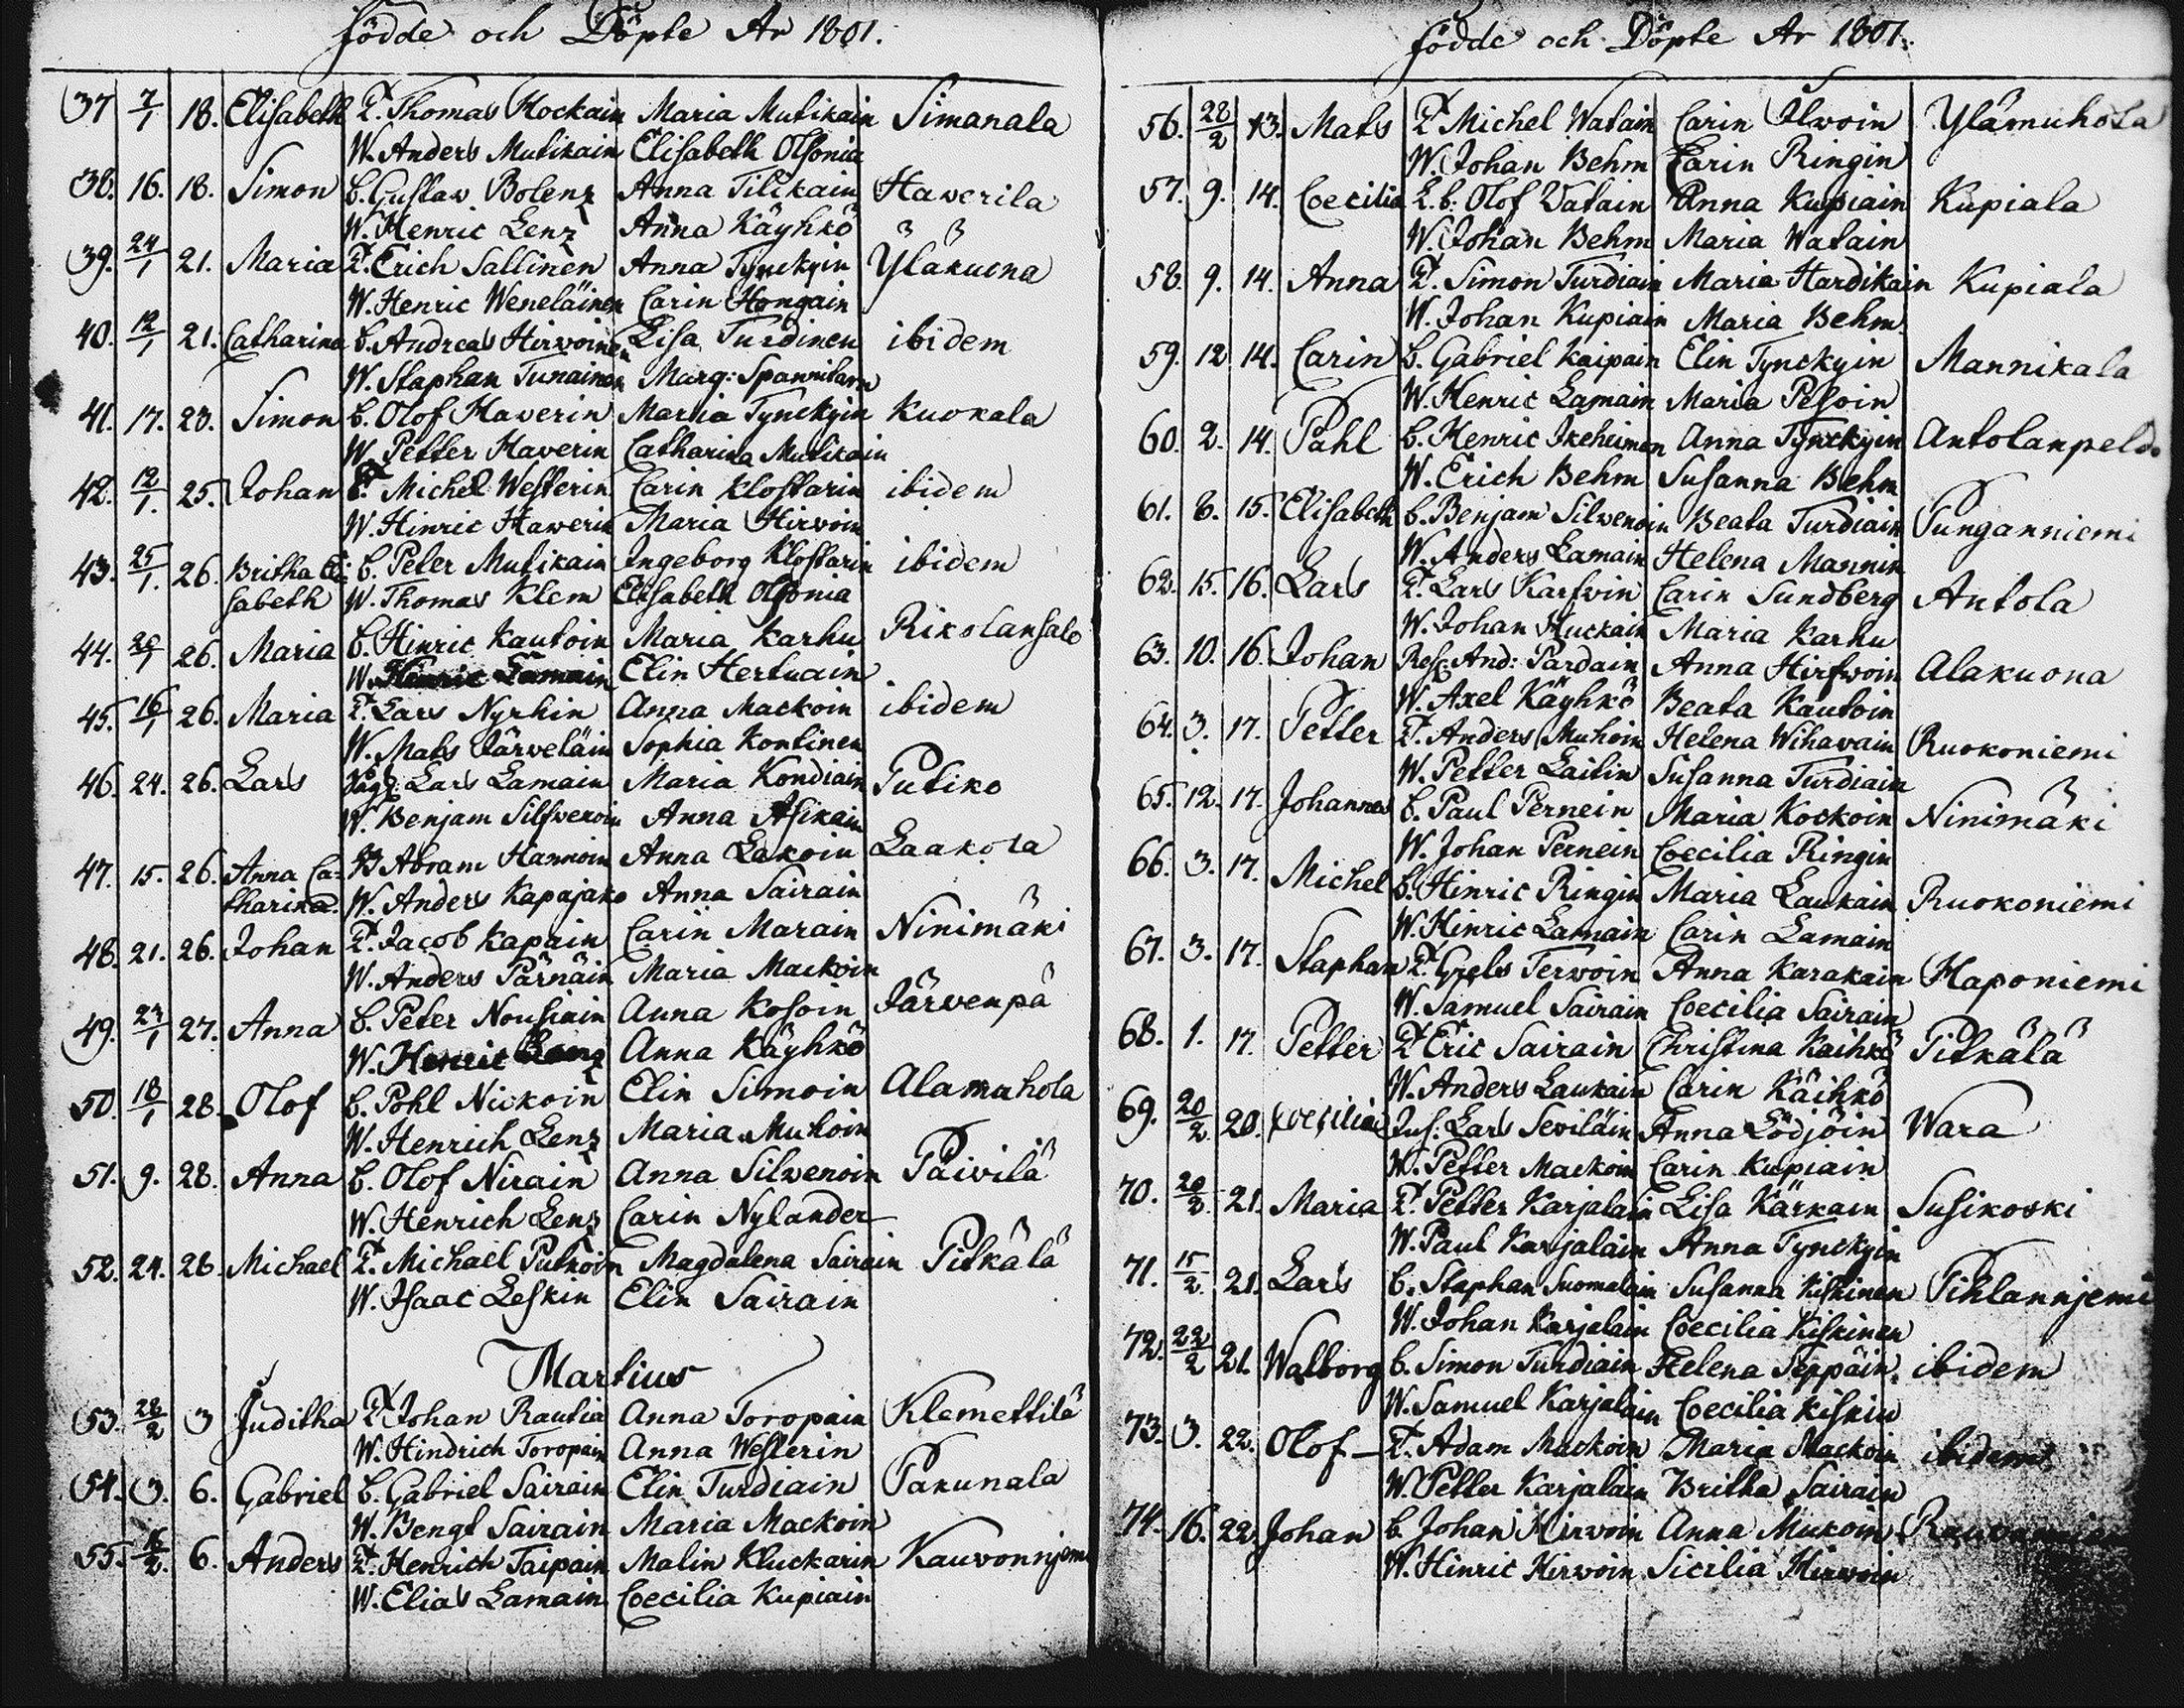 födde och Döpte År 1801.
37 7/1 18. Elisabeth T. Thomas Hockain Maria Mutikain Simanala
W. Anders Mutikain Elisabeth Olsonia
38. 16. 18. Simon B. Gustav Bolenz Anna Tilikain Hawerila
W. Henric Lenz Anna Käyhkö
39. 24/1 21. Maria T. Erich Sallinen Anna Tynckyin Yläkuona
W. Henric Weneläinen Carin Hongain
40. 12/1 21. Catharina B. Andreas Hirwoinen Lisa Turdinen ibidem
W. Staphan Tunainen Marg:
41. 17. 23. Simon B. Olof Hawerin Maria Tynckyin Kuokala
W. Petter Haverin Catharina Mutikain
42. 12/1. 25. Johan T. Michel Westerin Carin Klostarin ibidem
W. Hinric Hawerin Maria Hirvoin
43. 25/1. 26. Britha Eli B. Peter Mutikain Ingeborg Klostarin ibidem
sabeth W. Thomas Klem Elisabeth Olsonia
44. 20/1 26. Maria B. Hinric Kautoin Maria Karhu Rikolansalo
W. Henric Lamain Elin Hertuain
45. 16/1 26. Maria T. Lars Nyrhin Anna Mackoin ibidem
W. Mats Järveläin Sophia Kontinen
46. 24. 26. Lars Lars Lamain Maria Kondiain Putiko
W. Benjam Silfweroin Anna Asikain
47. 15. 26. Anna Ca- B Abram Hannoin Anna Lakoin Laakola
tharina. W. Anders Kapajako Anna Sairain
48. 21. 26. Johan T. Jacob Kapain Carin Marain Ninimäki
W. Anders Pärnäin Maria Mackoin
49. 23/1 27. Anna B. Peter Nousiain Anna Kosoin Järvenpä
W. Henric Lenz Anna Käyhkö
50. 18/1 28. Olof B. Pohl Nickoin Elin Simoin Alamuhola
W. Henrich Lenz Maria Muhoin
51. 9. 28. Anna B. Olof Nirain Anna Silwenoin Päivilä
W. Henrich Lenz Carin Nylander
52. 24. 28. Michael T. Michael Putkoin Magdalena Sairain Pitkälä
W. Isaac Leskin Elin Sairain
Martius
53. 28/2 3 Juditha T. Johan Rautia Anna Toropain Klemettilä
W. Hindrich Toropain Anna Westerin
54. 3. 6. Gabriel B. Gabriel Sairain Elin Turdiain Pakunala
W. Bengt Sairain Maria Mackoin
55. 16/2. 6. Anders T. Henrich Taipain Malin Kluckarin Kauvonnjemi
W. Elias Lamain Coecilia Kupiain
födde och Döpte År 1801.
56. 28/2 13. Mats T Michel Watain Carin Ilwoin Ylämuhola
W. Johan Behm Carin Ringin
57. 9. 14. Coecilia L.b: Olof Watain Anna Kupiain Kupiala
W. Johan Behm Maria Watain
58. 9. 14. Anna T. Simon Turdiain Maria Hardikain Kupiala
W. Johan Kupiain Maria Behm
59. 12 14. Carin B. Gabriel Kaipain Elin Tynckyin Mannikala
W. Henric Lamain Maria Pesoin
60. 2. 14. Pahl B. Henric Ikeheimon Anna Tynckyin Antolanpeldo
W. Erich Behm Susanna Behm
61. 6. 15. Elisabeth B. Benjam Silwenoin Beata Turdiain Punganniemi
W. Anders Lamain Helena Mannin
62. 15. 16. Lars T. Lars Karfvin Carin Sundberg Antola
W. Johan Huckain Maria Karhu
63. 10. 16. Johan Res: And: Pardain Anna Hirfwoin Alakuona
W. Axel Käyhkö Beata Kautoin
64. 3. 17. Petter T. Anders Muhoin Helena Wihavain Ruokoniemi
W. Petter Laitin Susanna Turdiain
65. 12. 17. Johannes B. Paul Pernein Maria Kockoin Ninimäki
W. Johan Pernein Coecilia Ringin
66. 3. 17. Michel B. Hinric Ringin Maria Laukain Ruokoniemi
W. Hinric Lamain Carin Lamain
67. 3. 17. Staphan T. Grels Terwoin Anna Karakain Haponiemi
W. Samuel Sairain Coecilia Sairain
68. 1. 17. Petter T Eric Sairain Christina Kaihkö Pitkälä
W. Anders Laukain Carin Käihkö
69. 20/2 20. Coecilia Lars Seviläin Anna Lödjöin Wara
W. Petter Mackoin Carin Kupiain
70. 20/2. 21. Maria T. Petter Karjalain Lisa Kärkain Susikoski
W. Paul Karjalain Anna Tynckyin
71. 15/2. 21. Lars B. Staphan Suomalain Susanna Kiskinen Pihlannjemi
W. Johan Karjalain Coecilia Kiskinen
72. 22/2 21. Walborg B. Simon Turdiain Helena Seppäin. ibidem
W. Samuel Karjalain Coecilia Kiskin
73. 3. 22. Olof — T. Adam Mackoin Maria Mackoin ibidem
W. Petter Karjalain Britha Sairain
74. 16. 22. Johan B. Johan Hirvoin Anna Mukoin
W. Hinric Hirvoin Sicilia Hirwoin